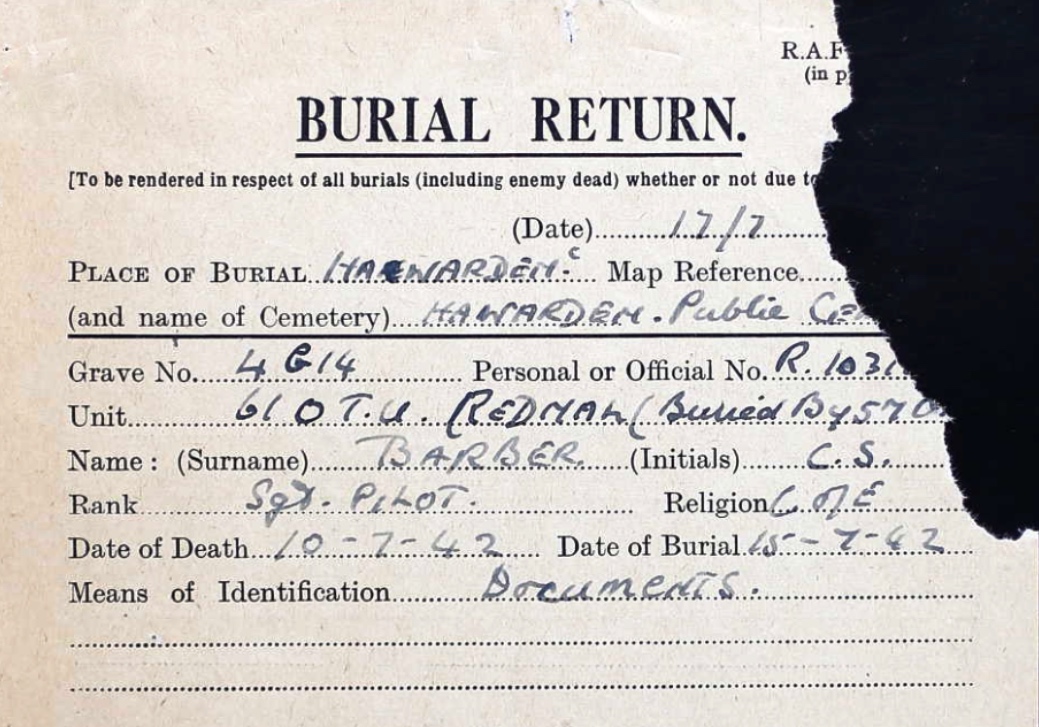 R.A.F
(in p
BURIAL RETURN.
[To be rendered in respect of all burials (including enemy dead) whether or not due to
(Date) 17/7
PLACE OF BURIAL HAWARDEN. Map Reference
(and name of Cemetery) HAWARDEN. Public Cem
Grave No. 4 G 14 Personal or Official No. R. 1031
Unit 61 O T.U. (REDNAL (Buried By 57 O
Name: (Surname) BARBER. (Initials) C. S.
Rank Sgt. PILOT. Religion C of E
Date of Death 10-7-42 Date of Burial 15-7-42
Means of Identification Documents.